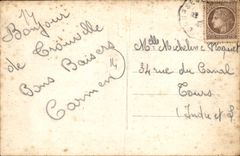 14
Bonjour
de Trouville
Bons Baisers
Carmen
14
Mlle Micheline
34 rue du Canal
Tours
(Indre et L